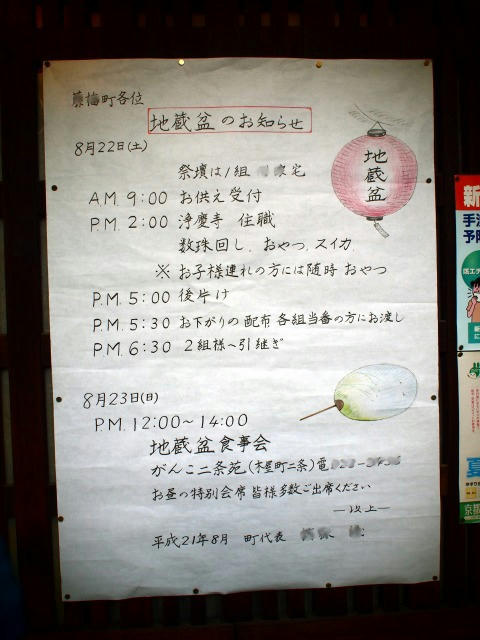 町各位
地蔵盆のお知らせ
8月22日(土)
祭壇は1組 宅
A.M. 9:00 お供え受付
P.M. 2:00 浄慶寺 住職
数珠回し、おやつ、スイカ
※ お子様連れの方には随時 おやつ
P.M. 5:00 後片け
P.M. 5:30 お下がりの配布 各組当番の方にお渡し
P.M. 6:30 2組様へ引継ぎ
8月23日(日)
P.M. 12:00~14:00
地蔵盆食事会
がんこ二条苑(木屋町二条)電
お昼の特別会席 皆様多数ご出席ください
―以上―
平成21年8月 町代表
地蔵盆
新
手洗
予防
夏
京都